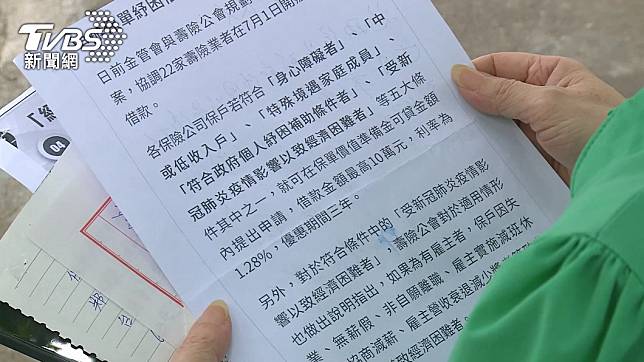 TVBS
新聞網
單紓困
日前金管會與壽險公會規劃
協調22家壽險業者在7月1日開
案，
借款。
各保險公司保戶若符合「身心障礙者」、「中
或低收入戶」、「特殊境遇家庭成員」、
「符合政府個人紓困補助條件者」、「受新
冠肺炎疫情影響以致經濟困難者」等五大條
件其中之一，就可在保單價值準備金可貸金額
內提出申請，借款金額最高10萬元，利率為
1.28%，優惠期間三年。
另外，對於符合條件中的「受新冠肺炎疫情影
響以致經濟困難者」，壽險公會對於適用情形
也做出說明指出，如果為有雇主者，保戶因失
業、無薪假、非自願離職、雇主實施減班休
協商減薪、雇主營收衰退減少
致經濟困難者
04